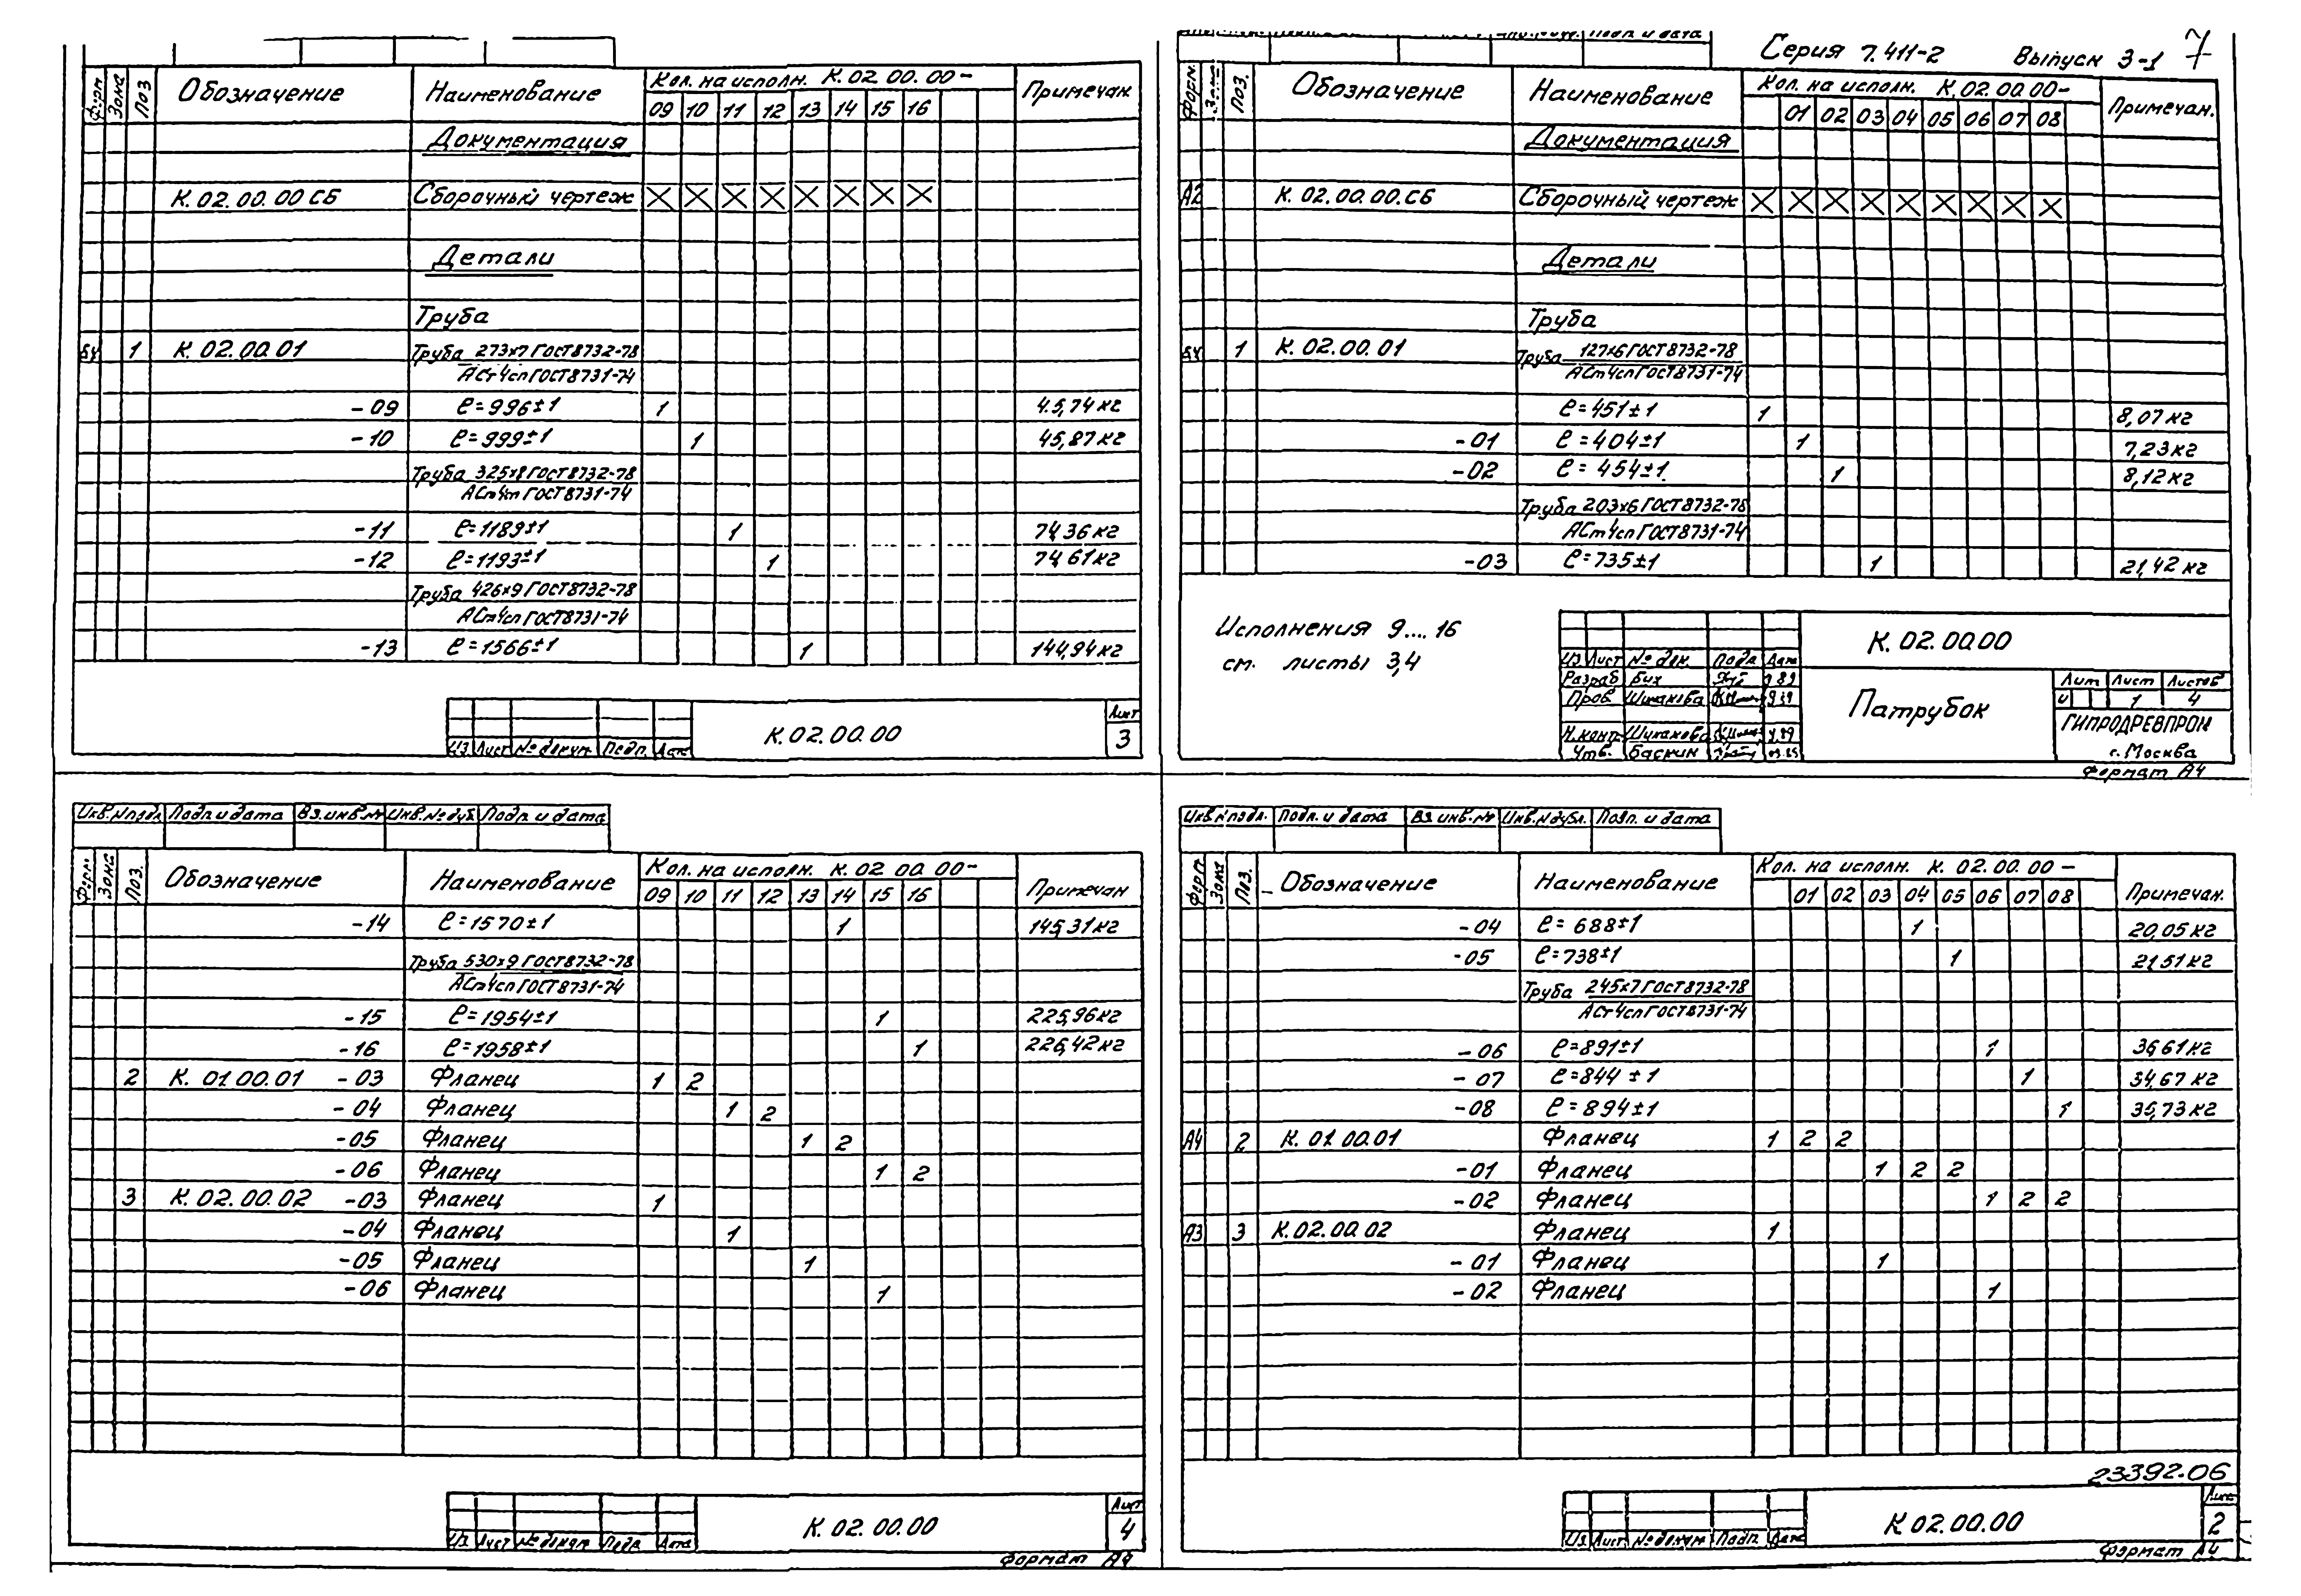 Серия 7.411-2 Выпуск 3-1 7
Форм. Зона Поз Обозначение Наименование Кол. на исполн. К. 02. 00. 00- Примечак
09 10 11 12 13 14 15 16
Документация
К. 02. 00. 00 СБ Сборочный чертеж X X X X X X X X
Детали
Труба
БЧ 1 К. 02. 00. 01 Труба 273х7 ГОСТ 8732-78
АСт4сп ГОСТ 8731-74
-09 ℓ=996±1 1 45,74 кг
-10 ℓ=999±1 1 45,87 кг
Труба 325х8 ГОСТ 8732-78
АСт4сп ГОСТ 8731-74
-11 ℓ=1189±1 1 74,36 кг
-12 ℓ=1193±1 1 74,61 кг
Труба 426х9 ГОСТ 8732-78
АСт4сп ГОСТ 8731-74
-13 ℓ=1566±1 1 144,94 кг
Из Лист № докум Подп. Дата К. 02. 00. 00 Лист 3
Подп и дата
Форм. Зона Поз. Обозначение Наименование Кол. на исполн. К. 02. 00. 00- Примечан.
01 02 03 04 05 06 07 08
Документация
А2 К. 02. 00. 00. СБ Сборочный чертеж X X X X X X X X X
Детали
Труба
БЧ 1 К. 02. 00. 01 Труба 127х6 ГОСТ 8732-78
АСт4сп ГОСТ 8731-74
ℓ=451±1 1 8,07 кг
-01 ℓ=404±1 1 7,23 кг
-02 ℓ=454±1. 1 8,12 кг
Труба 203х6 ГОСТ 8732-78
АСт4сп ГОСТ 8731-74
-03 ℓ=735±1 1 21,42 кг
Исполнения 9.... 16
см. листы 3,4
Из Лист № док. Подп. Дата
Разраб Бих
Пров Шишкова
Н.контр. Шишкова
Утв. Баскин
К. 02. 00. 00
Патрубок
Лит Лист Листов
и 1 4
ГИПРОДРЕВПРОМ
г. Москва
Формат А4
Инв.№подл Подп. и дата Вз. инв.№ Инв.№ дуб Подп. и дата
Форм. Зона Поз. Обозначение Наименование Кол. на исполн. К. 02. 00. 00- Примечан
09 10 11 12 13 14 15 16
-14 ℓ=1570±1 1 145,31 кг
Труба 530х9 ГОСТ 8732-78
АСт4сп ГОСТ 8731-74
-15 ℓ=1954±1 1 225,96 кг
-16 ℓ=1958±1 1 226,42 кг
2 К. 01. 00. 01 -03 Фланец 1 2
-04 Фланец 1 2
-05 Фланец 1 2
-06 Фланец 1 2
3 К. 02. 00. 02 -03 Фланец 1
-04 Фланец 1
-05 Фланец 1
-06 Фланец 1
Из Лист № докум Подп. Дата К. 02. 00. 00 Лист 4
Формат А4
Инв.№подл. Подп. и дата Вз. инв.№ Инв.№дубл. Подп. и дата
Форм Зона Поз. Обозначение Наименование Кол. на исполн. К. 02. 00. 00- Примечан.
01 02 03 04 05 06 07 08
-04 ℓ=688±1 1 20,05 кг
-05 ℓ=738±1 1 21,51 кг
Труба 245х7 ГОСТ 8732-78
АСт4сп ГОСТ 8731-74
-06 ℓ=891±1 1 36,61 кг
-07 ℓ=844±1 1 34,67 кг
-08 ℓ=894±1 1 36,73 кг
А4 2 К. 01. 00. 01 Фланец 1 2 2
-01 Фланец 1 2 2
-02 Фланец 1 2 2
А3 3 К. 02. 00. 02 Фланец 1
-01 Фланец 1
-02 Фланец 1
23392.06
Из Лист № докум Подп. Дата К 02. 00. 00 Лист 2
Формат А4